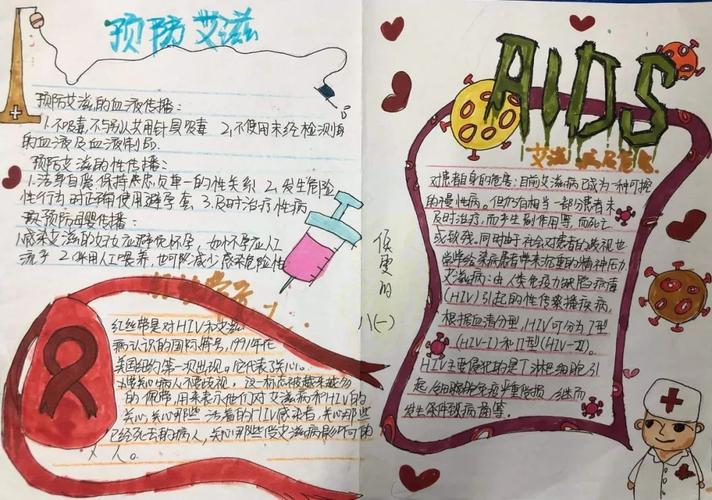 预防艾滋
预防艾滋的血液传播：
1.不吸毒,不与别人共用针具吸毒 2,不使用未经检测过
的血液及血液制品.
预防艾滋的性传播：
1.洁身自爱,保持忠贞单一的性关系 2,发生危险
性行为时正确使用避孕套 3,及时治疗性病
预防母婴传播：
感染艾滋的妇女应避免怀孕,如怀孕应人工
流产 2,采用人工喂养,也可减少感染危险性
红丝带是对HIV和艾滋
病认识的国际符号,1991年在
美国纽约第一次出现。它代表了关心。
这一标志被越来越多
的人佩带,用来表示他们对艾滋病和HIV的
关心,关心那些活着的HIV感染者,关心那些
已经死去的病人,关心那些受艾滋病影响的
人。
八(一)
AIDS
艾滋病危害
对患者自身的危害:目前艾滋病已成为一种可控
的慢性病。但仍有相当一部分患者未
及时治疗,而产生副作用等,而死亡
或致残,同时由于社会对患者的歧视也
常常给患者带来沉重的精神压力
艾滋病:由人类免疫缺陷病毒
(HIV)引起的性传染疾病,
根据血清分型,HIV可分为I型
(HIV-I)和II型(HIV-II)。
HIV主要侵犯的是T淋巴细胞,引
起细胞免疫严重缺损,继而
发生条件致病菌等.